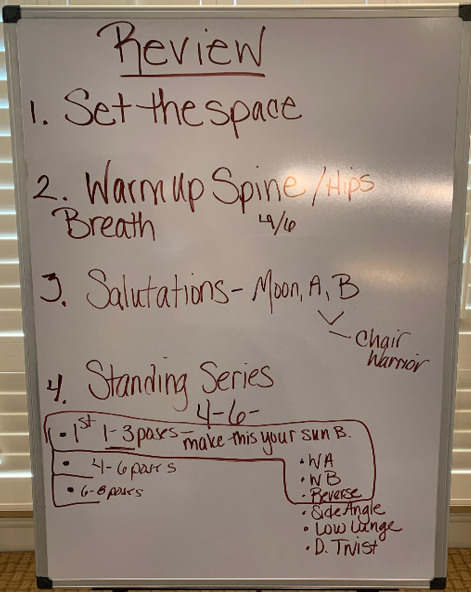 Review
1. Set the space
2. Warm up Spine / Hips
Breath 4/6
3. Salutations - Moon, A, B
- Chair
Warrior
4. Standing Series
4-6-
• 1st 1-3 poses - make this your sun B.
• 4-6 poses
• 6-8 poses
• WA
• WB
• Reverse
• Side Angle
• Low Lunge
• D. Twist